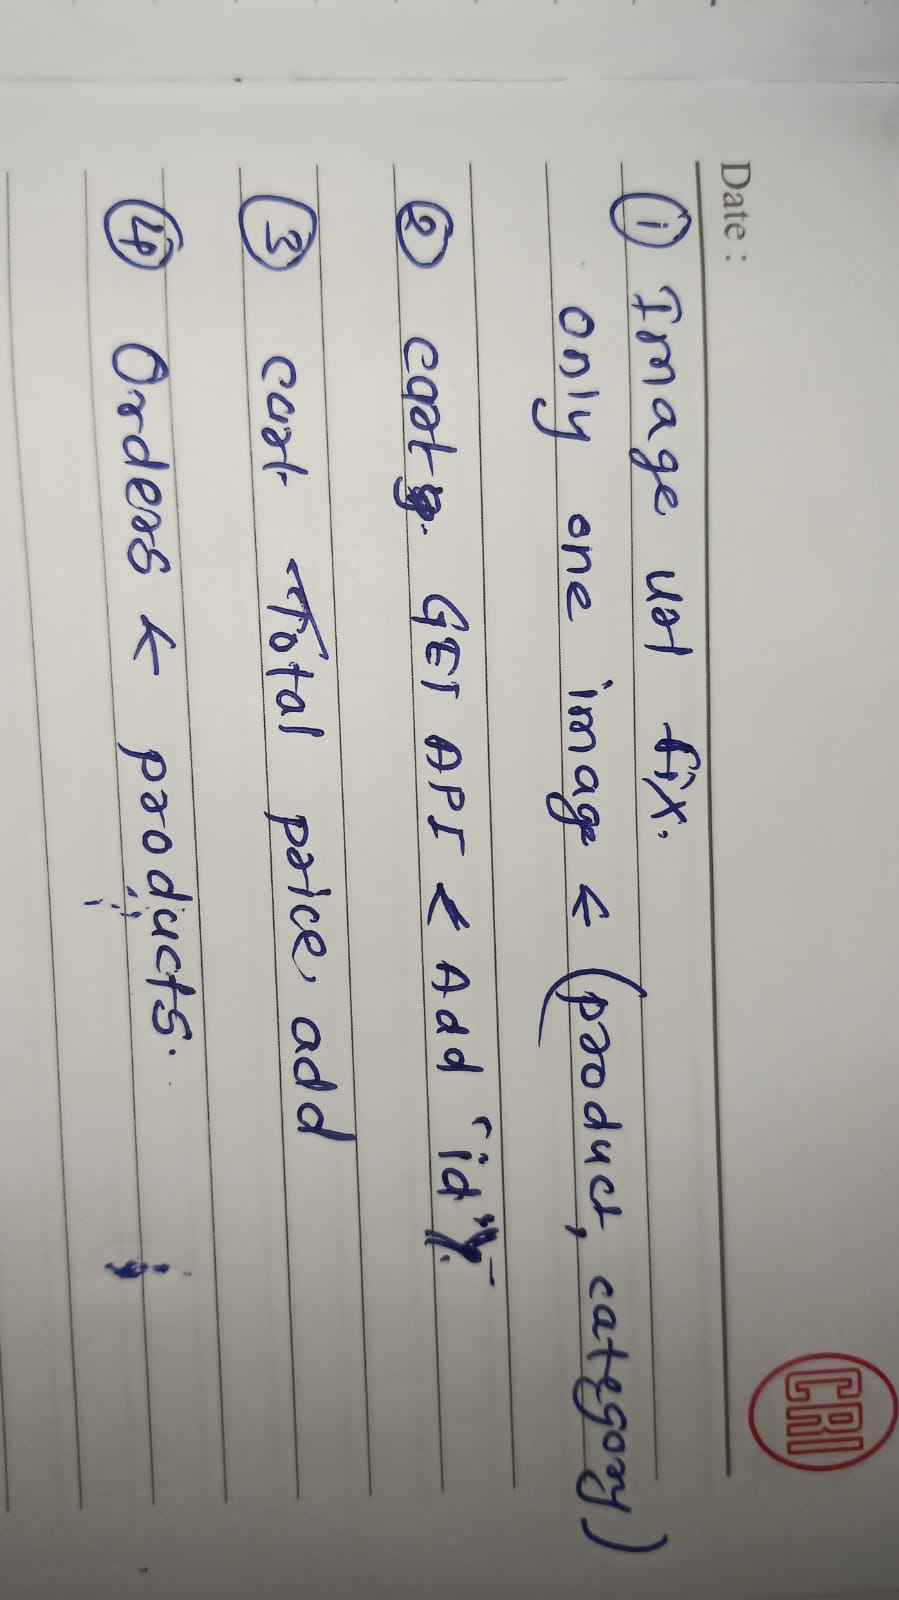 Date :
CRI
① Image url fix.
only one image ← (product, category)
② cart GET API ← Add "id"
③ cart Total price, add
④ Orders ← products.